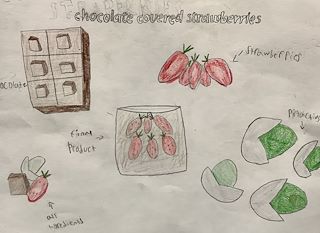 chocolate covered strawberries
strawberries
ocolate
Pistachios
final
product
all
ingredients